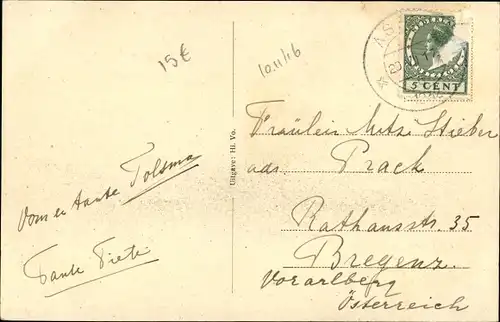 15€
10.11/16
5 CENT
Vom en tante Tolsma
Tante Piete
Uitgave: Hi. Vo.
Fräulein Mitzi Stieber
adr. Prack
Rathausstr. 35
Bregenz
Vorarlberg
Österreich